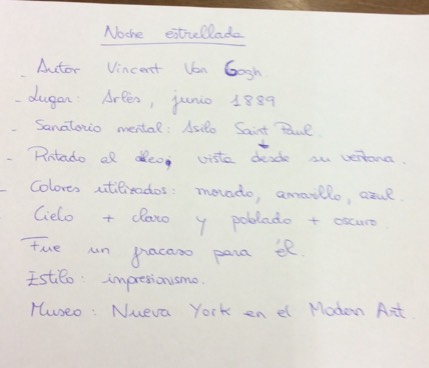 Noche estrellada
- Autor Vincent Van Gogh.
- Lugar: Arlés, junio 1889
- Sanatorio mental: Asilo Saint Paul.
- Pintado al óleo, vista desde su ventana.
- Colores utilizados: morado, amarillo, azul.
Cielo + claro y poblado + oscuro.
Fue un fracaso para él.
Estilo: impresionismo.
Museo: Nueva York en el Modern Art.